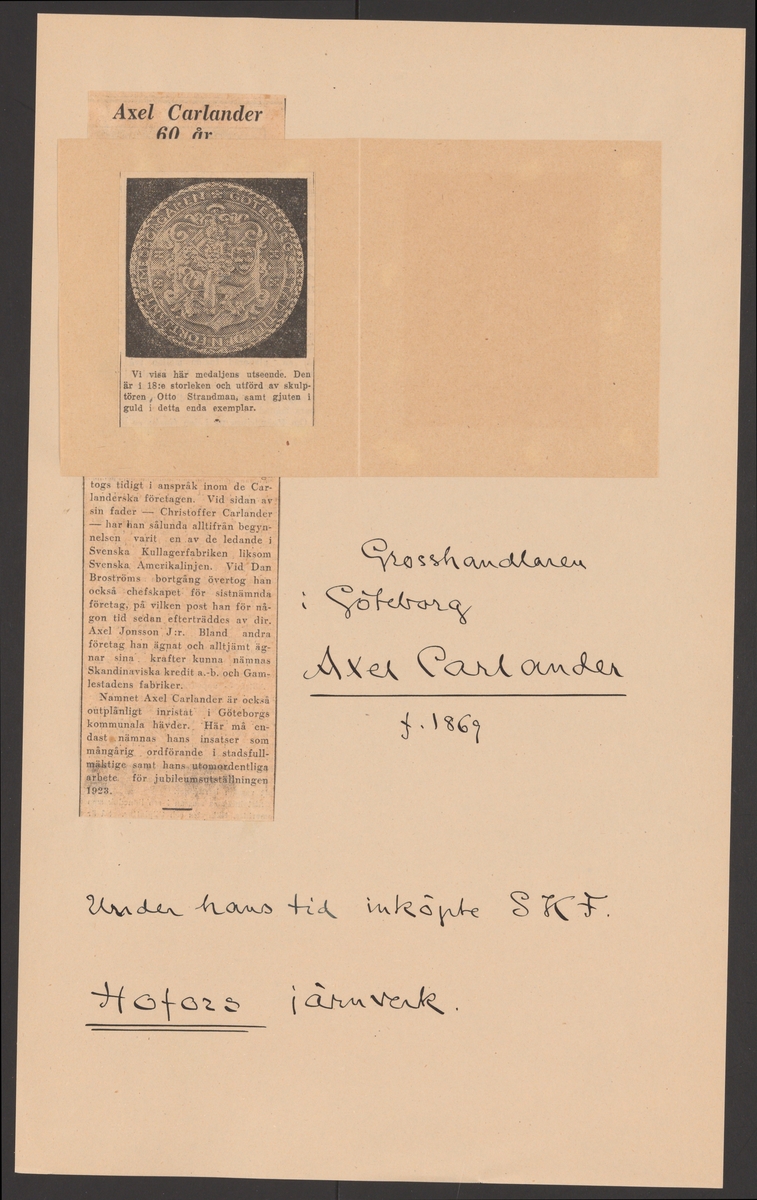 Axel Carlander
60 år
Vi visa här medaljens utseende. Den
är i 18:e storleken och utförd av skulp-
tören, Otto Strandman, samt gjuten i
guld i detta enda exemplar.
togs tidigt i anspråk inom de Car-
landerska företagen. Vid sidan av
sin fader — Christoffer Carlander
— har han sålunda alltifrån begyn-
nelsen varit en av de ledande i
Svenska Kullagerfabriken liksom
Svenska Amerikalinjen. Vid Dan
Broströms bortgång övertog han
också chefskapet för sistnämnda
företag, på vilken post han för nå-
gon tid sedan efterträddes av dir.
Axel Jonsson J:r. Bland andra
företag han ägnat och alltjämt äg-
nar sina krafter kunna nämnas
Skandinaviska kredit a.-b. och Gam-
lestadens fabriker.
Namnet Axel Carlander är också
outplånligt inristat i Göteborgs
kommunala hävder. Här må en-
dast nämnas hans insatser som
mångårig ordförande i stadsfull-
mäktige samt hans utomordentliga
arbete för jubileumsutställningen
1923.
Grosshandlaren
i Göteborg
Axel Carlander
f. 1869
Under hans tid inköpte SKF.
Hofors järnverk.